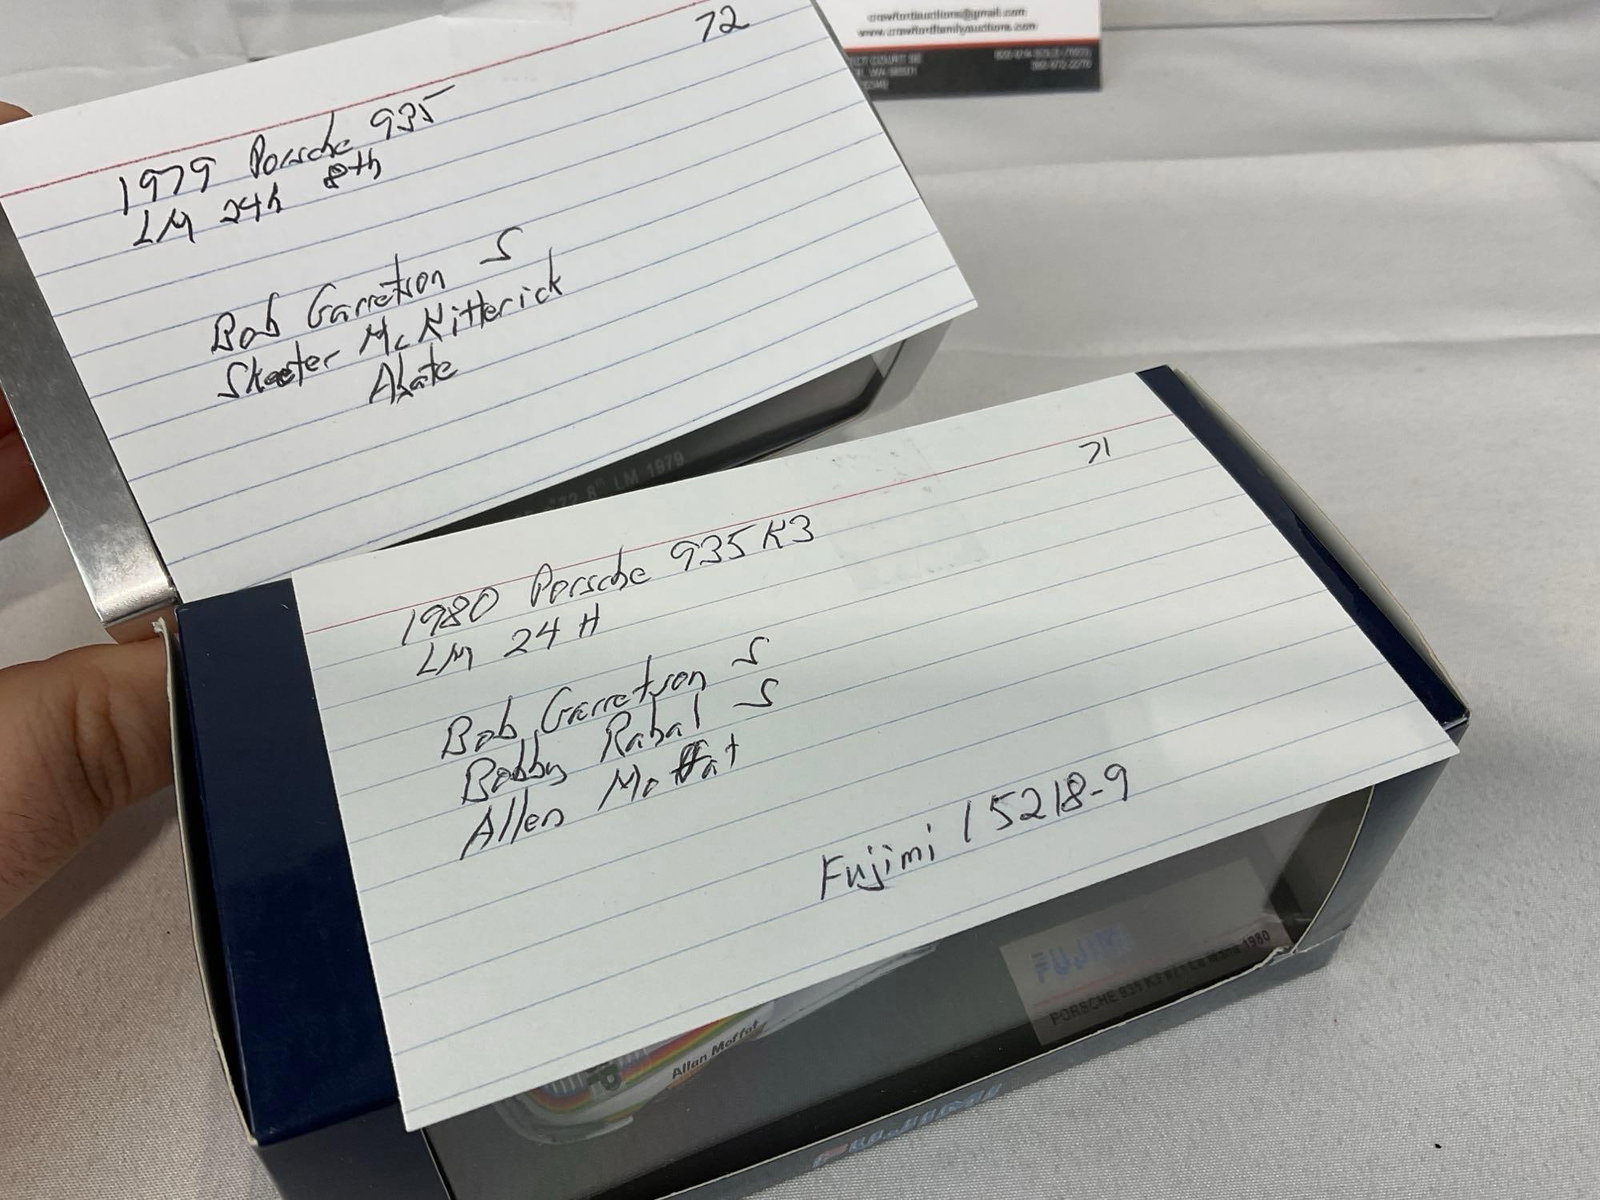 crawfordauctions@gmail.com
www.crawfordfamilyauctions.com
72
1979 Porsche 935
LM 24h 8th
Bob Garretson S
Skeeter McKitterick
Abate
LM 1979
71
1980 Porsche 935 K3
LM 24 H
Bob Garretson S
Bobby Rahal S
Allen Moffat
Fujimi 15218-9
FUJIMI
PORSCHE 935 K3 Le Mans 1980
Allan Moffat
FUJIMI